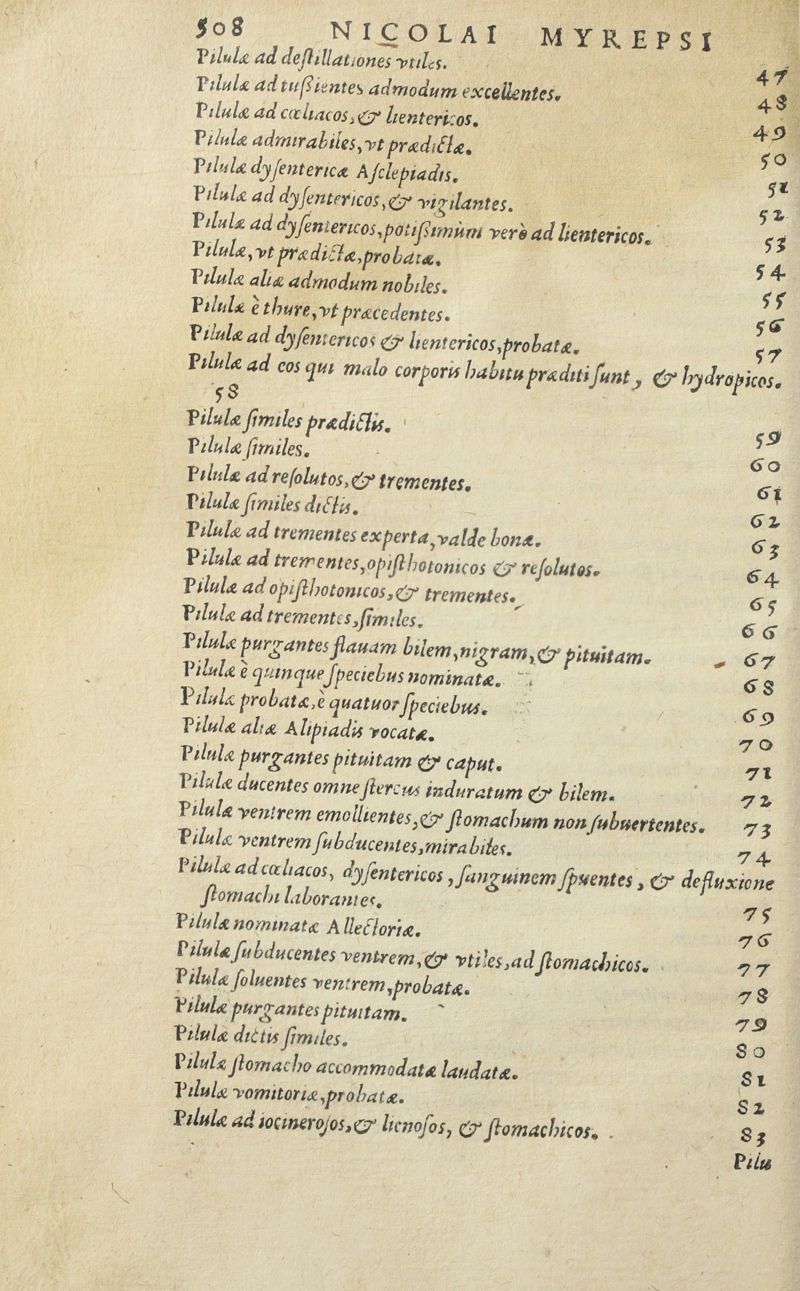 508 NICOLAI MYREPSI
Pilulæ ad deſtillationes vtiles. 47
Pilulæ ad tuſsientes admodum excellentes. 48
Pilulæ ad cœliacos, & lientericos. 49
Pilulæ admirabiles, vt prædictæ. 50
Pilulæ dyſentericæ Aſclepiadis. 51
Pilulæ ad dyſentericos, & vigilantes. 52
Pilulæ ad dyſentericos, potiſsimùm verò ad lientericos. 53
Pilulæ, vt prædictæ, probatæ. 54
Pilulæ aliæ admodum nobiles. 55
Pilulæ è thure, vt præcedentes. 56
Pilulæ ad dyſentericos & lientericos, probatæ. 57
Pilulæ ad eos qui malo corporis habitu præditi ſunt, & hydropicos.
58
Pilulæ ſimiles prædictis. 59
Pilulæ ſimiles. 60
Pilulæ ad reſolutos, & trementes. 61
Pilulæ ſimiles dictis. 62
Pilulæ ad trementes experta, valde bonæ. 63
Pilulæ ad trementes, opiſthotonicos & reſolutos. 64
Pilulæ ad opiſthotonicos, & trementes. 65
Pilulæ ad trementes, ſimiles. 66
Pilulæ purgantes flauam bilem, nigram, & pituitam. 67
Pilulæ è quinque ſpeciebus nominatæ. 68
Pilulæ probatæ, è quatuor ſpeciebus. 69
Pilulæ aliæ Alipiadis vocatæ. 70
Pilulæ purgantes pituitam & caput. 71
Pilulæ ducentes omne ſtercus induratum & bilem. 72
Pilulæ ventrem emollientes, & ſtomachum non ſubuertentes. 73
Pilulæ ventrem ſubducentes, mirabiles. 74
Pilulæ ad cœliacos, dyſentericos, ſanguinem ſpuentes, & defluxione
ſtomachi laborantes. 75
Pilulæ nominatæ Allectoriæ. 76
Pilulæ ſubducentes ventrem, & vtiles, ad ſtomachicos. 77
Pilulæ ſoluentes ventrem, probatæ. 78
Pilulæ purgantes pituitam. 79
Pilulæ dictis ſimiles. 80
Pilulæ ſtomacho accommodatæ laudatæ. 81
Pilulæ vomitoriæ, probatæ. 82
Pilulæ ad iocineroſos, & lienoſos, & ſtomachicos. 83
Pilu